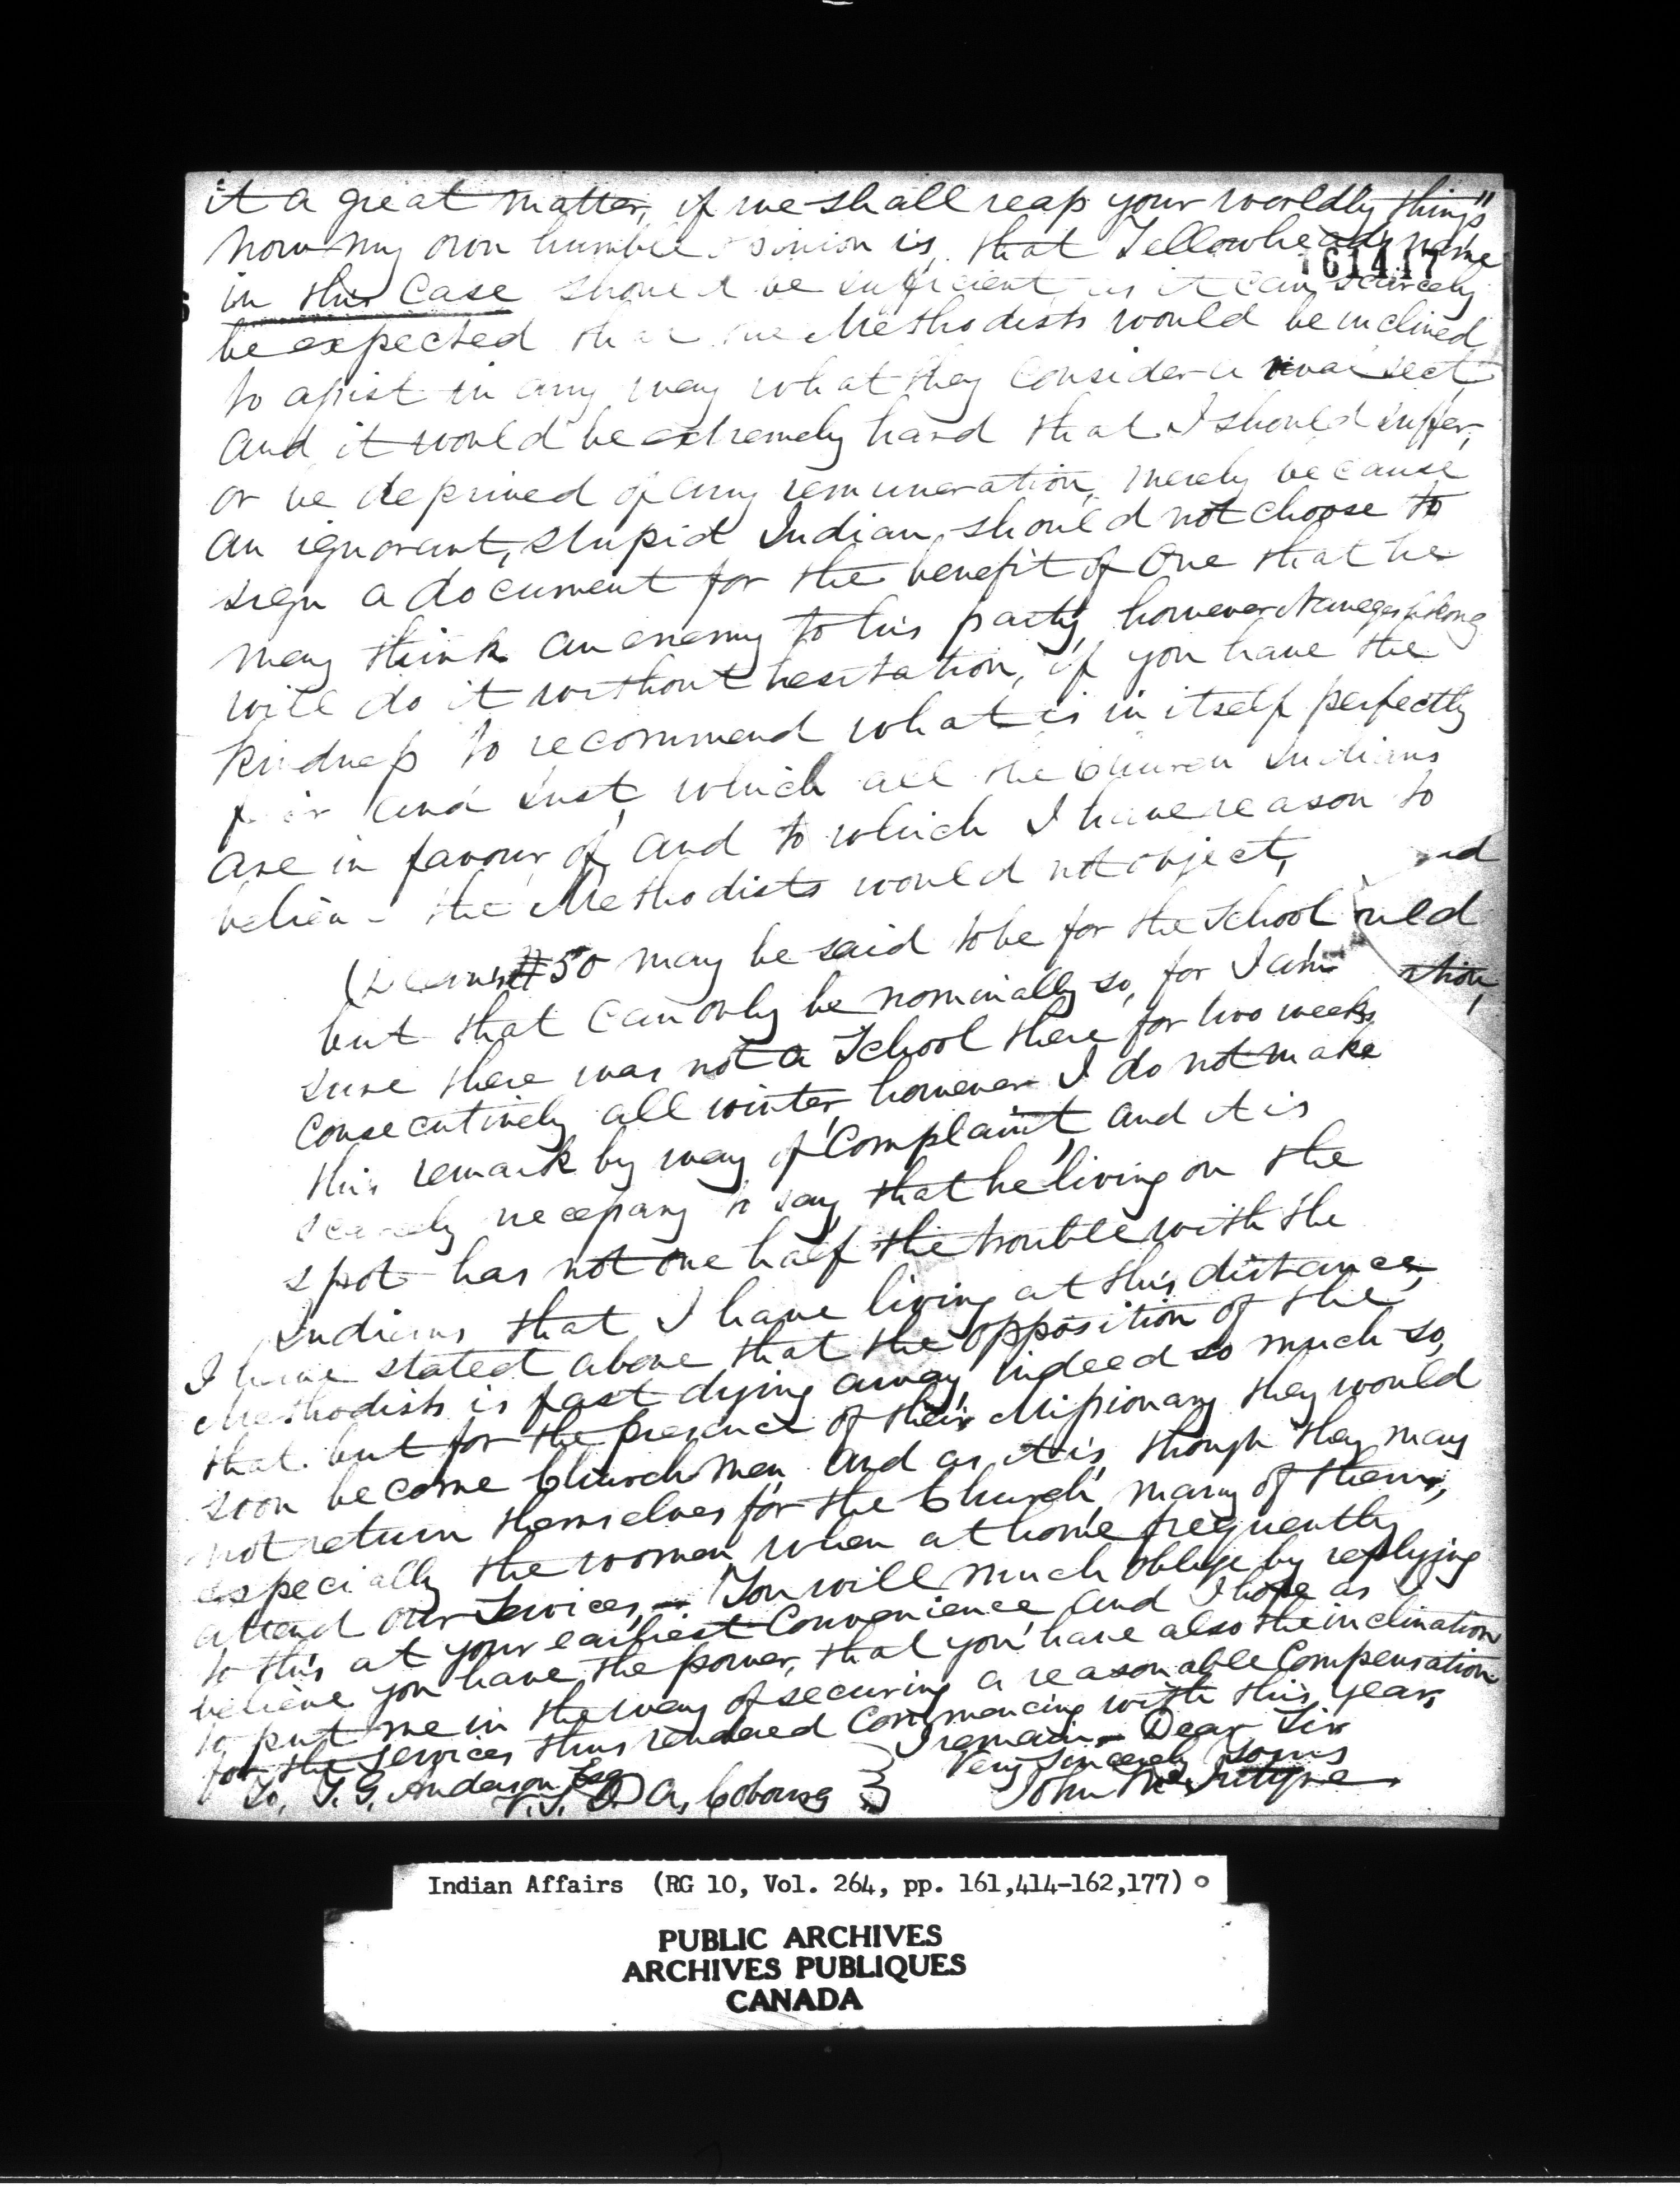 it a great matter, if we shall reap your worldly things"
now my own humble opinion is, that Yellowheads name
161417
in this Case should be sufficient, as it can scarcely
be expected that the Methodists would be inclined
to assist in any way what they consider a rival sect,
and it would be extremely hard that I should suffer,
or be deprived of any remuneration, merely because
an ignorant, stupid Indian should not choose to
sign a document for the benefit of one that he
may think an enemy to his party, however
will do it without hesitation, if you have the
kindness to recommend what is in itself perfectly
fair and just, which all the Church Indians
are in favour of, and to which I have reason to
believe the Methodists would not object,
50 may be said to be for the School
but that can only be nominally so, for I am
sure there was not a School there for two weeks
consecutively all winter, however I do not make
this remark by way of Complaint, and it is
scarcely necessary to say, that he living on the
spot has not one half the trouble with the
Indians that I have living at this distance,
I have stated above that the opposition of the
Methodists is fast dying away, indeed so much so,
that but for the presence of their Missionary they would
soon become Churchmen, and as it is, though they may
not return themselves for the Church, many of them,
especially the women, when at home frequently
attend our Services, — You will much oblige by replying
to this at your earliest Convenience and I hope as I
believe you have the power, that you have also the inclination
to put me in the way of securing a reasonable Compensation
for the services thus rendered Commencing with this year,
I remain, Dear Sir
Very Sincerely Yours
To, T. G. Anderson Esq John McIntyre
Cobourg
Indian Affairs (RG 10, Vol. 264, pp. 161,414-162,177)
PUBLIC ARCHIVES
ARCHIVES PUBLIQUES
CANADA